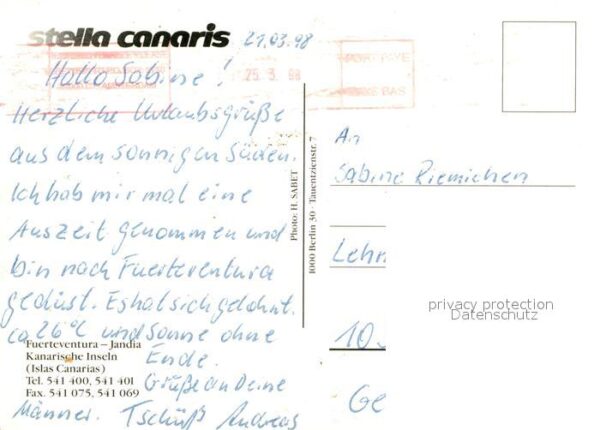 stella canaris 21.03.98
PORT PAYE
25. 3. 98
PAYS BAS
Hallo Sabine!
Herzliche Urlaubsgrüße
aus dem sonnigen Süden.
Ich hab mir mal eine
Auszeit genommen und
bin nach Fuerteventura
gedüst. Es hat sich gelohnt.
ca 26°C und Sonne ohne
Ende.
Grüße an Deine
Männer. Tschüß Andreas
Fuerteventura – Jandia
Kanarische Inseln
(Islas Canarias)
Tel. 541 400, 541 401
Fax. 541 075, 541 069
Photo: H. SABET
1000 Berlin 30 · Tauentzienstr. 7
An
Sabine Riemichen
Lehn
10
Ge
privacy protection
Datenschutz